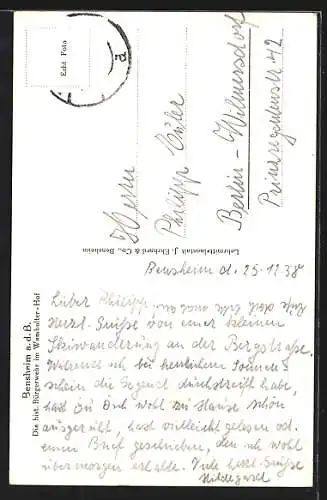 Bensheim a.d.B.
Die hist. Bürgerwehr im Wambolter-Hof
Echt Foto
Lehrmittelanstalt J. Ehrhard & Co., Bensheim
Herrn
Philipp Euler
Berlin-Wilmersdorf
Prinzregentenstr. 42
Bensheim d. 25.12.38
Lieber Philipp,
Herzl. Grüße von einer kleinen
Skiwanderung an der Bergstraße.
Während ich bei herrlichem Sonnen-
schein die Gegend durchstreift habe,
hast Du Dich wohl zu Hause schön
ausgeruht, hast vielleicht gelesen od.
einen Brief geschrieben, den ich wohl
übermorgen erhalte. Grüße
Hildegard